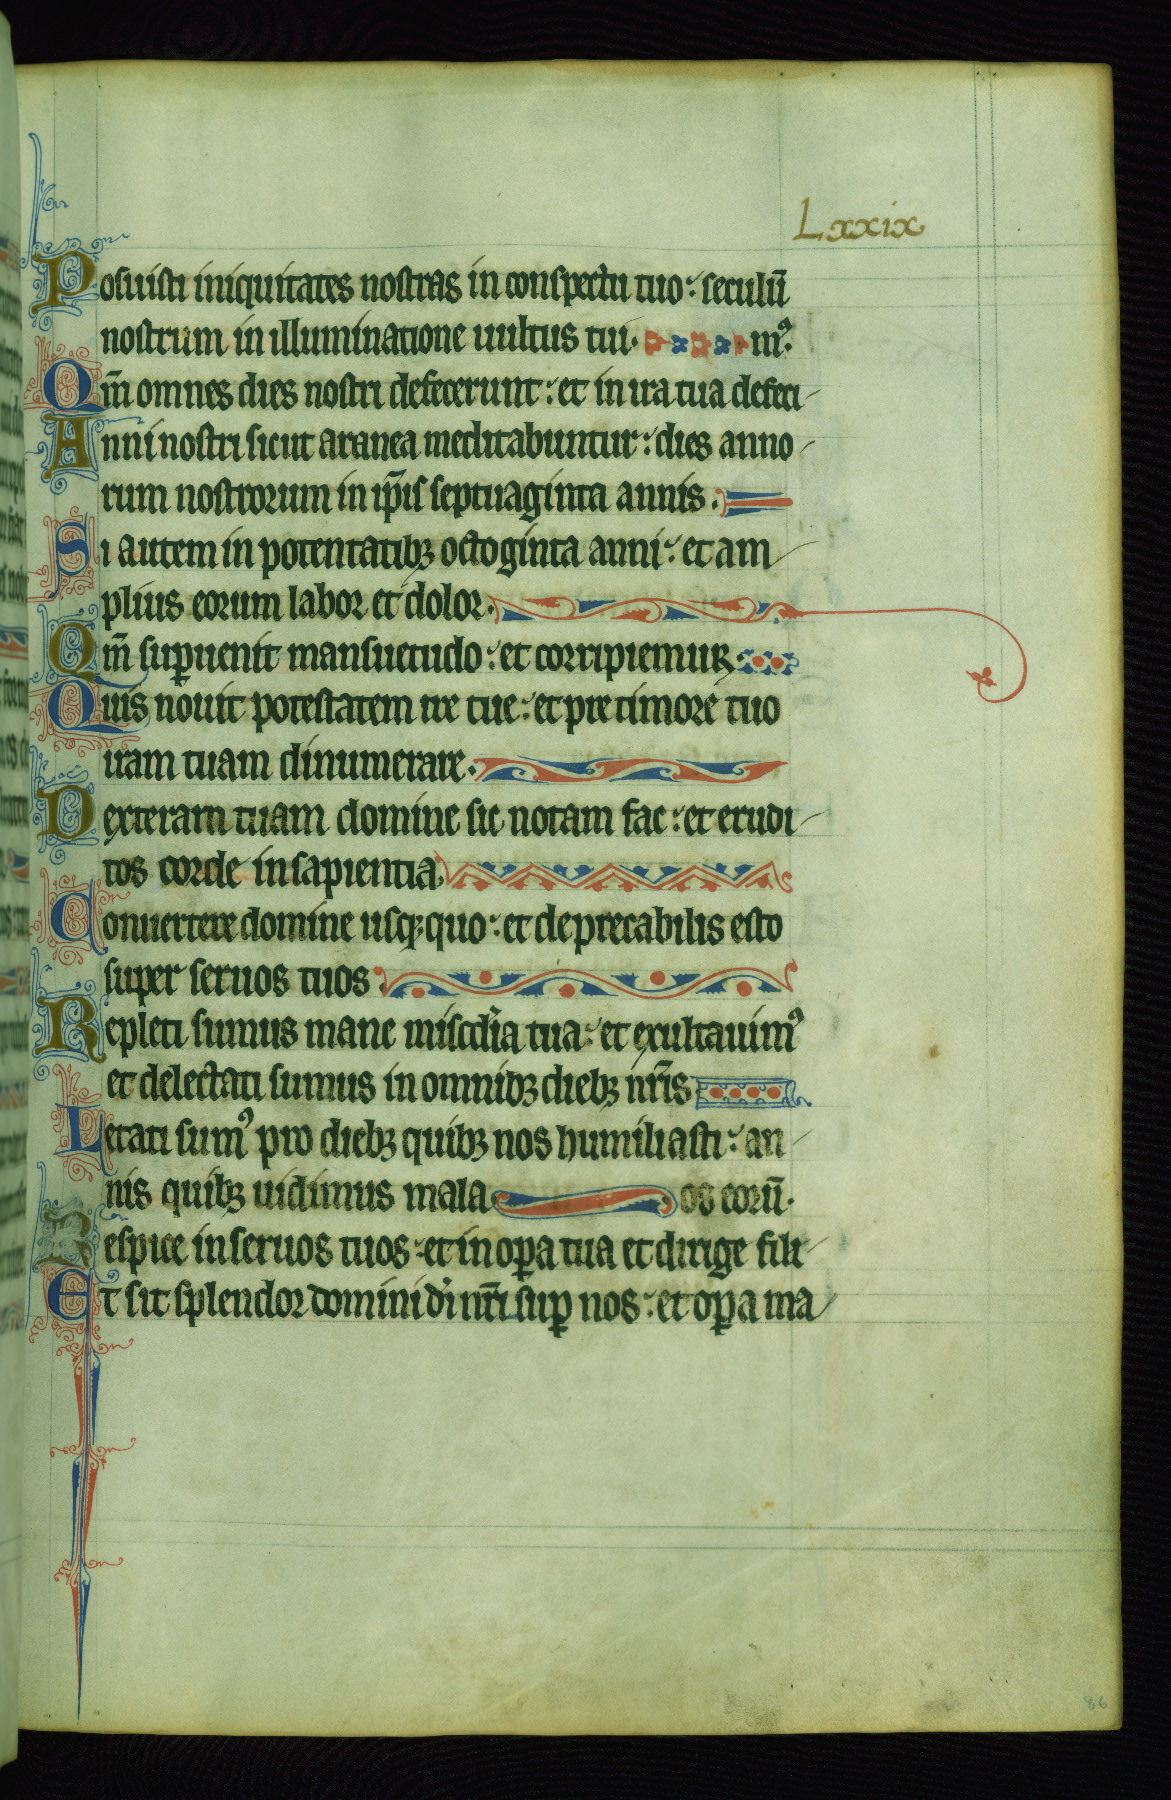 Lxxix
Posuisti iniquitates nostras in conspectu tuo: seculũ
nostrum in illuminatione uultus tui. mꝰ.
Qm̃ omnes dies nostri defecerunt: et in ira tua defeci
Anni nostri sicut aranea meditabuntur: dies anno
rum nostrorum in ip̃is septuaginta annis.
Si autem in potentatibꝫ octoginta anni: et am
plius eorum labor et dolor.
Qm̃ suꝑuenit mansuetudo: et corripiemur.
Quis nouit potestatem ire tue: et pre timore tuo
iram tuam dinumerare.
Dexteram tuam domine sic notam fac: et erudi
tos corde in sapientia.
Conuertere domine usqꝫquo: et deprecabilis esto
super seruos tuos.
Repleti sumus mane miscd̃ia tua: et exultauimꝰ
et delectati sumus in omnibꝫ diebꝫ nr̃is
Letati sumꝰ pro diebꝫ quibꝫ nos humiliasti: an
nis quibꝫ uidimus mala os eorũ.
Respice in seruos tuos: et in oꝑa tua et dirige fili
Et sit splendor domini dĩ nr̃i suꝑ nos: et oꝑa ma
86